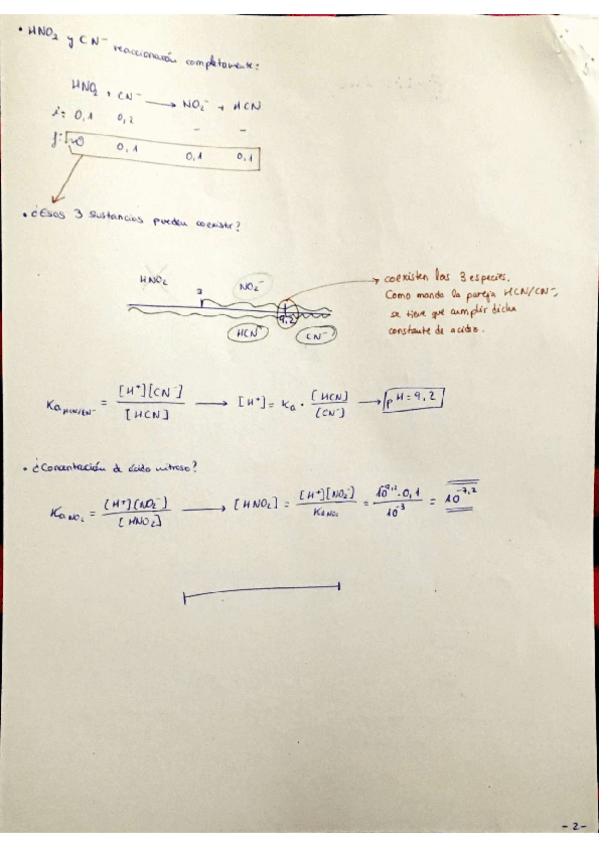 • HNO₂ y CN⁻ reaccionarán completamente:
HNO₂ + CN⁻ ⟶ NO₂⁻ + HCN
i: 0,1 0,2 - -
f: ~0 0,1 0,1 0,1
• ¿Esas 3 sustancias pueden coexistir?
HNO₂ NO₂⁻
3 9,2
HCN CN⁻
→ coexisten las 3 especies.
Como manda la pareja HCN/CN⁻,
se tiene que cumplir dicha
constante de acidez.
Ka HCN/CN⁻ = [H⁺][CN⁻] / [HCN] ⟶ [H⁺] = Ka · [HCN] / [CN⁻] ⟶ pH = 9,2
• ¿Concentración de ácido nitroso?
Ka NO₂ = [H⁺][NO₂⁻] / [HNO₂] ⟶ [HNO₂] = [H⁺][NO₂⁻] / Ka NO₂ = 10^9,2 · 0,1 / 10⁻³ = 10^-7,2
- 2 -